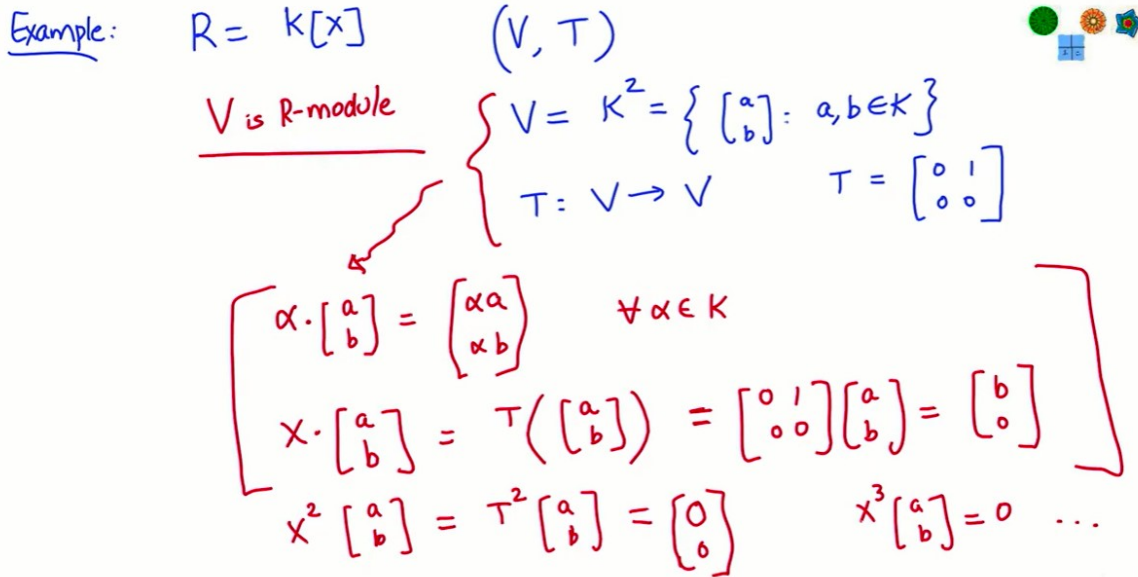 Example: R = K[x] (V, T)
V is R-module { V = K² = { [a b] : a, b ∈ K }
T : V → V T = [0 1 0 0]
α · [a b] = [αa αb] ∀ α ∈ K
x · [a b] = T([a b]) = [0 1 0 0] [a b] = [b 0]
x² [a b] = T² [a b] = [0 0] x³ [a b] = 0 ...